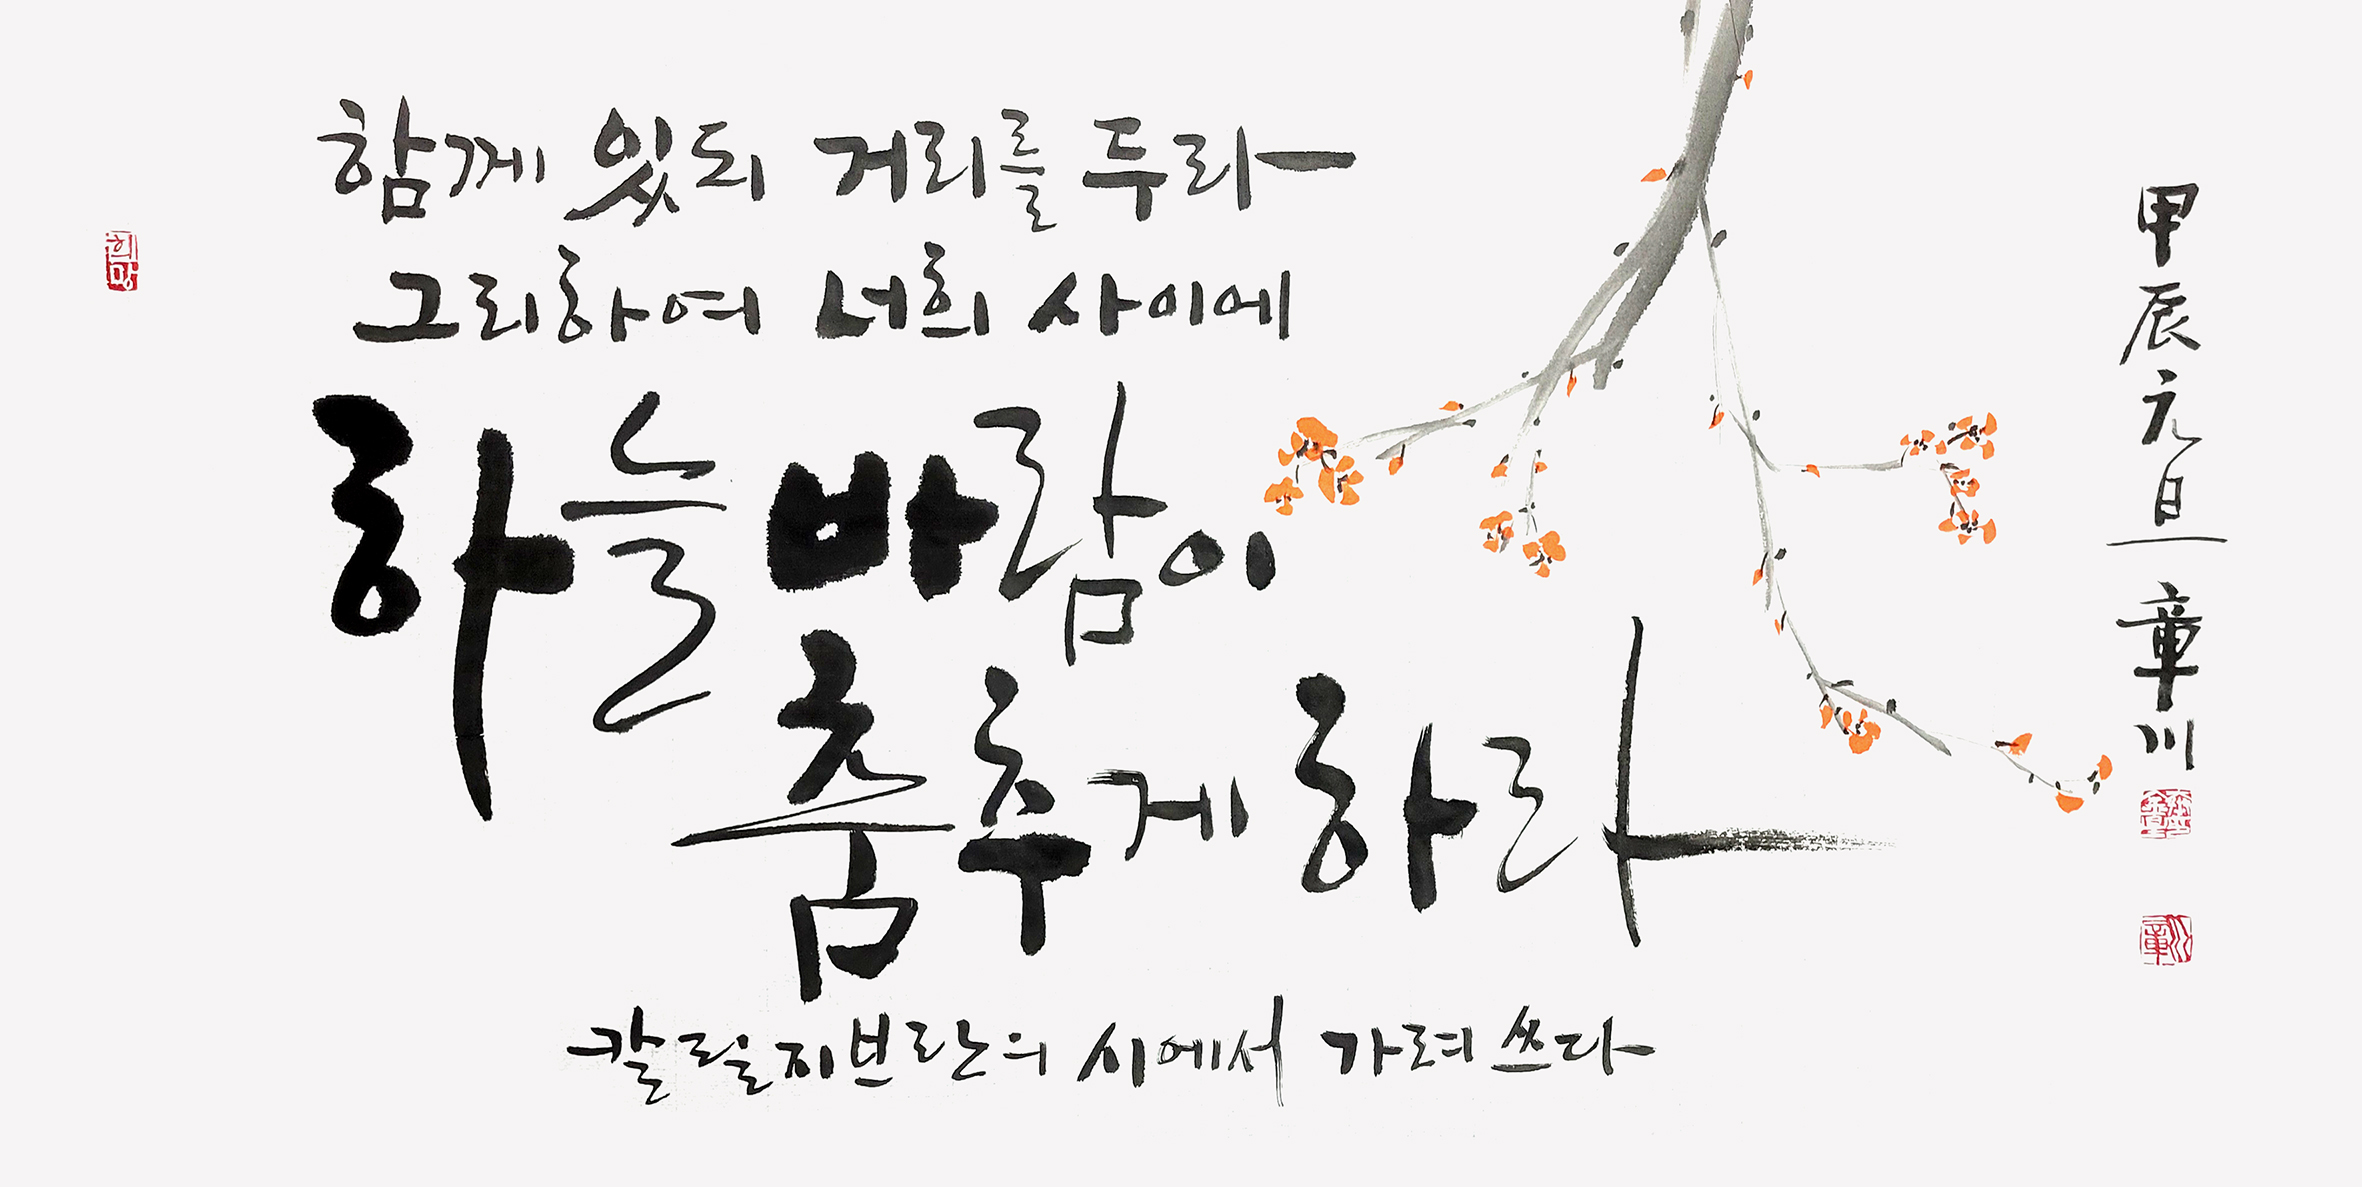 함께 있되 거리를 두라
그리하여 너희 사이에
하늘바람이
춤추게 하라
칼릴지브란의 시에서 가려 쓰다
甲辰元旦 章川
희망